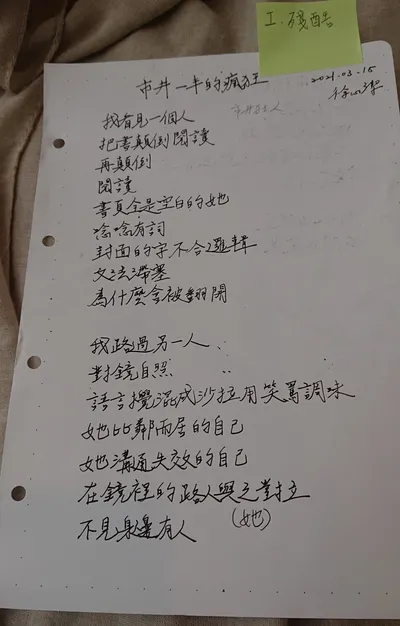 I. 殘酷
市井一半的瘋狂
2021.03.15
市井之人
我看見一個人
把書顛倒閱讀
再顛倒
閱讀
書頁全是空白的她
唸唸有詞
封面的字不合邏輯
文法滯塞
為什麼會被翻開
我路過另一人
對鏡自照
語言攪混成沙拉用笑罵調味
她比鄰而居的自己
她溝通失效的自己
在鏡裡的路人與之對立
不見身邊有人
(她)